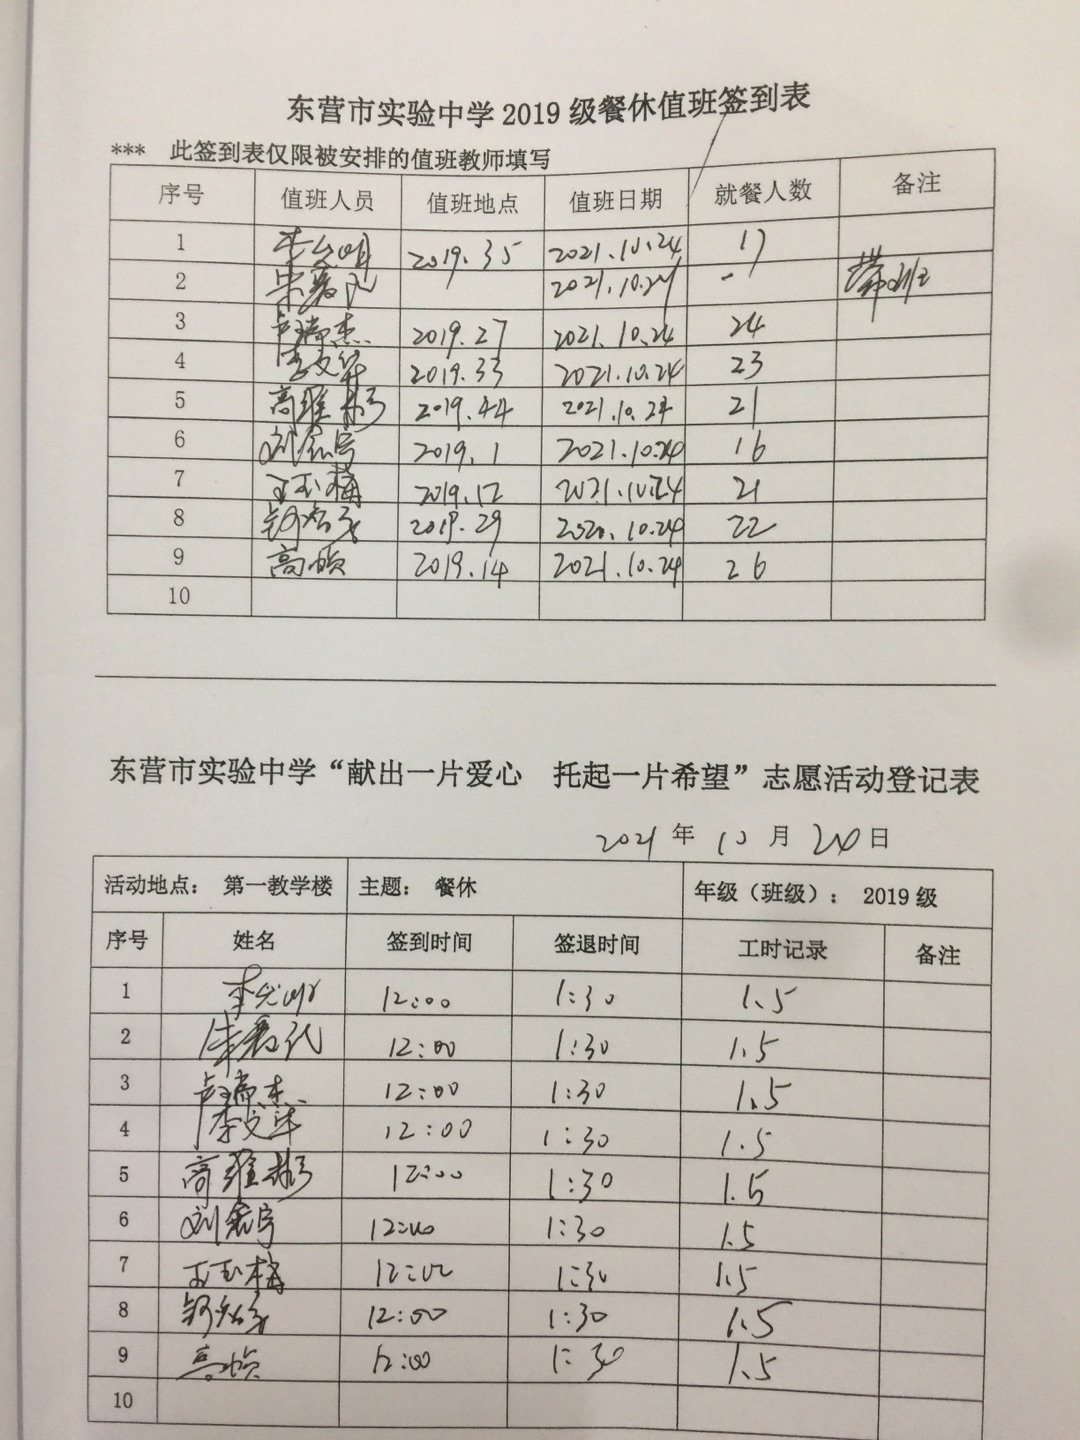 东营市实验中学 2019 级餐休值班签到表
*** 此签到表仅限被安排的值班教师填写
序号 值班人员 值班地点 值班日期 就餐人数 备注
1 2019.35 2021.10.24 17
2 2021.10.24 - 带班
3 卢瑞杰 2019.27 2021.10.24 24
4 李文华 2019.33 2021.10.24 23
5 高维彬 2019.44 2021.10.24 21
6 刘鑫宇 2019.1 2021.10.24 16
7 王玉梅 2019.12 2021.10.24 21
8 2019.29 2020.10.24 22
9 高婉 2019.14 2021.10.24 26
10
东营市实验中学“献出一片爱心 托起一片希望”志愿活动登记表
2021 年 10 月 24 日
活动地点： 第一教学楼 主题： 餐休 年级（班级）： 2019 级
序号 姓名 签到时间 签退时间 工时记录 备注
1 12:00 1:30 1.5
2 12:00 1:30 1.5
3 卢瑞杰 12:00 1:30 1.5
4 李文华 12:00 1:30 1.5
5 高维彬 12:00 1:30 1.5
6 刘鑫宇 12:00 1:30 1.5
7 王玉梅 12:00 1:30 1.5
8 12:00 1:30 1.5
9 12:00 1:30 1.5
10